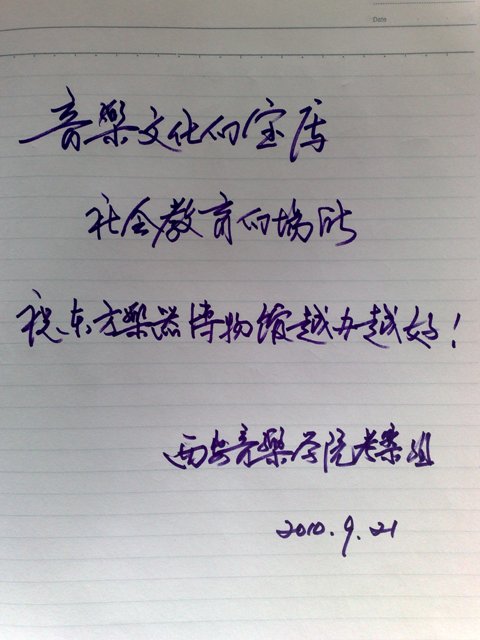 Date
音樂文化的宝库
社会教育的场所
祝东方樂器博物馆越办越好！
西安音樂学院考察组
2010.9.21